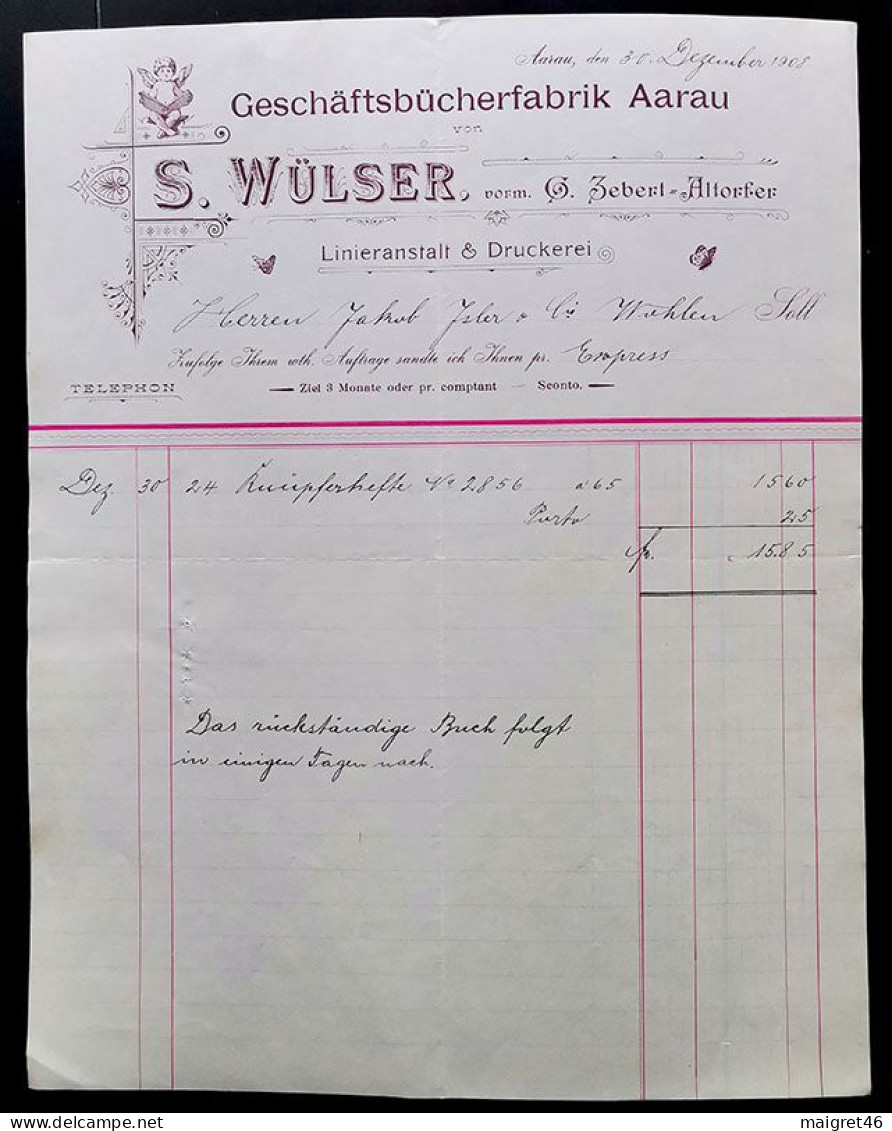 Aarau, den 30. Dezember 1908
Geschäftsbücherfabrik Aarau
von
S. WÜLSER, vorm. G. Zeberl-Altorfer
Linieranstalt & Druckerei
Herren Jakob Isler & Cie Wohlen Soll
Zufolge Ihrem wth. Auftrage sandte ich Ihnen pr. Express
TELEPHON
— Ziel 3 Monate oder pr. comptant — Sconto. —
Dez. 30 24 Knüpferhefte No 2856 a 65 15 60
Porto 25
fr. 15.85
Das rückständige Buch folgt
in einigen Tagen nach.
delcampe.net
maigret46